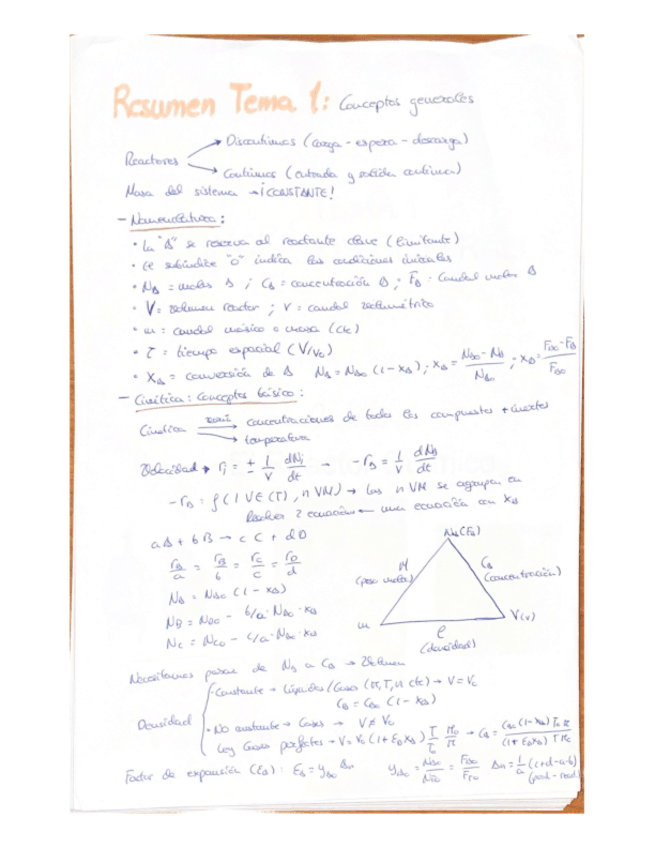 Resumen Tema 1: Conceptos generales
Reactores → Discontinuos (carga - espera - descarga)
→ Continuos (entrada y salida continua)
Masa del sistema → ¡CONSTANTE!
- Nomenclatura:
• La "A" se reserva al reactante clave (limitante)
• El subíndice "o" indica las condiciones iniciales
• NA = moles A ; CA = concentración A ; FA = Caudal molar A
• V = volumen reactor ; v = caudal volumétrico
• m = caudal másico o masa (cte)
• τ = tiempo espacial (V/vo)
• XA = conversión de A NA = NAo (1 - XA) ; XA = (NAo - NA)/NAo ; XA = (FAo - FA)/FAo
- Cinética: Conceptos básicos:
Cinética → concentraciones de todos los compuestos + inertes
→ temperatura
Velocidad → ri = ± 1/V dNi/dt → -rA = 1/V dNA/dt
-rA = f (1 VE (T), n VM) → las n VM se agrupan en
Resolver 2 ecuaciones ← una ecuación con XA
aA + bB → cC + dD
rA/a = rB/b = rC/c = rD/d
NA = NAo (1 - XA)
NB = NBo - b/a · NAo · XA
NC = NCo - c/a · NAo · XA
NA (FA)
M
(peso molar)
CA
(concentración)
m
V (v)
ρ
(densidad)
Necesitamos pasar de NA a CA → Volumen
Densidad
• Constante → Líquidos/Gases (π, T, n cte) → V = Vo
CA = CAo (1 - XA)
• No constante → Gases → V ≠ Vo
Ley Gases perfectos → V = Vo (1 + εAXA) T/To πo/π → CA = CAo (1 - XA) To π / (1 + εAXA) T πo
Factor de expansión (εA) : εA = yAo Δn yAo = NAo/NTo = FAo/FTo Δn = 1/a (c+d-a-b)
(prod - reac)